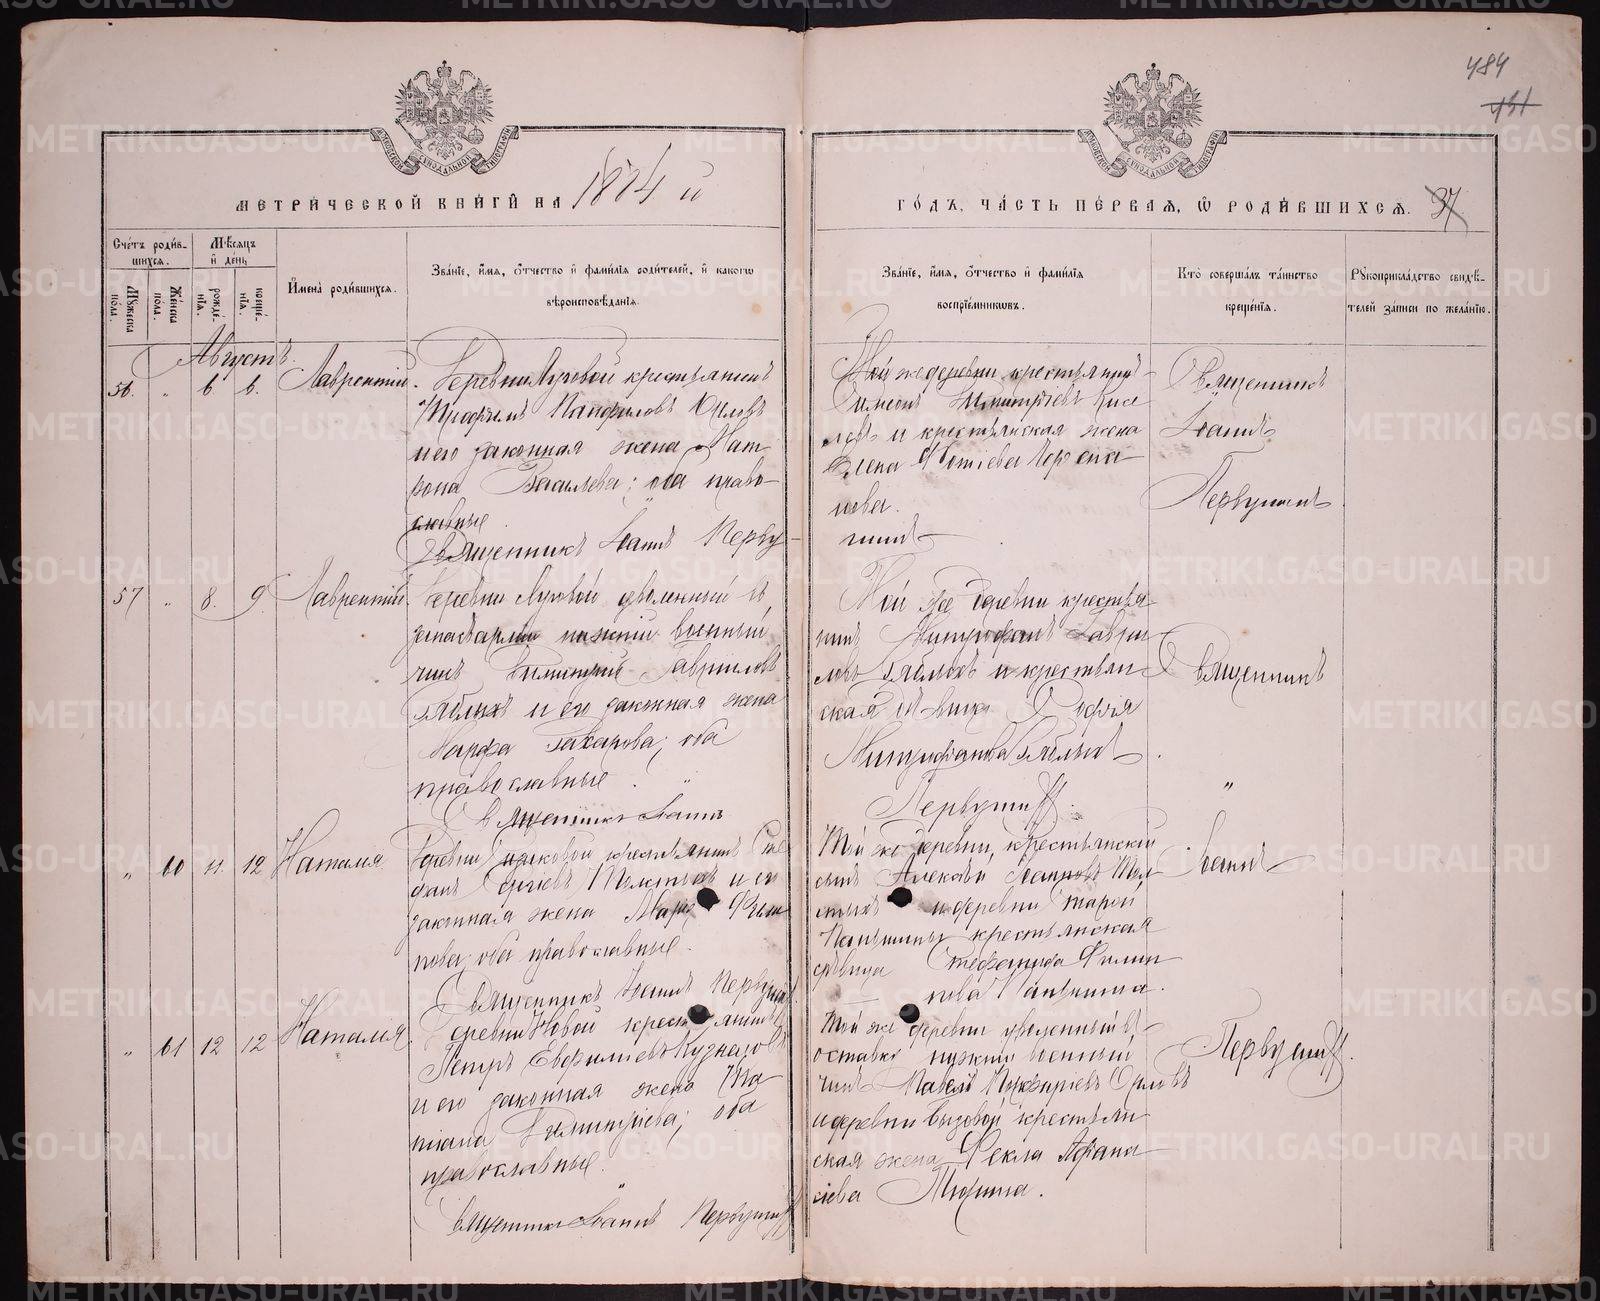 484
431
МОСКОВСКОЙ СѴНОДАЛЬНОЙ ТИПОГРАФІИ
МОСКОВСКОЙ СѴНОДАЛЬНОЙ ТИПОГРАФІИ
МЕТРИ́ЧЕСКОЙ КНИ́ГИ НА 1884 й
ГО́ДЪ, ЧА́СТЬ ПЕ́РВАЯ, Ѡ РОДИ́ВШИХСЯ. 37
Счетъ роди́в-
шихся.
Мѣсяцъ
и день
Мужеска
пола.
Женска
пола.
рожде-
нія.
креще-
нія.
Имена роди́вшихся.
Зва́ніе, и́мя, о́тчество и фами́лія родителей, и какогѡ
вѣроисповѣданія.
Зва́ніе, и́мя, о́тчество и фами́лія
воспріе́мниковъ.
Кто̀ соверша́лъ та́инство
креще́нія.
Рукоприкла́дство свидѣ-
телей за́писи по жела́нію.
Августъ.
56. " 6 6. Лаврентій.
Деревни Луговой крестьянинъ
Панфиловъ Орловъ
и его законная жена Мат-
рона Васильева; оба право-
славные.
Священникъ Іоаннъ Перву-
Той же деревни крестьянинъ
Симеонъ Димитріевъ Кисе
левъ и крестьянская жена
Елена
нова.
шинъ
Священникъ
Іоаннъ
Первушинъ.
57 " 8. 9. Лаврентій.
Деревни Луговой уволенный въ
запасъ арміи нижній военный
чинъ Димитрій Гавриловъ
и его законная жена
Марфа Захарова; оба
православные.
Священникъ Іоаннъ
Той же деревни крестья
нинъ Митрофанъ Гаври
ловъ и крестьян-
ская дѣвица Софія
Митрофанова
Первушинъ.
Священникъ
"
" 60 11. 12 Наталия
Деревни крестьянинъ Сте
фанъ Сергіевъ и его
законная жена Марія
пова; оба православные.
Священникъ Іоаннъ Первушинъ
Той же деревни, крестьянскій
сынъ Алексѣй Іоанновъ
и деревни Старой
крестьянская
дѣвица Стефанида Филип
пова
Іоаннъ
" 61 12 12 Наталия.
Деревни Новой крестьянинъ
Петръ Кузнецовъ
и его законная жена Та-
тіана Димитріева; оба
православные.
Священникъ Іоаннъ Первушинъ
Той же деревни уволенный въ
отставку нижній военный
чинъ Павелъ Орловъ
и деревни крестьян-
ская жена Ѳекла Афана
сіева Тюрина.
Первушинъ.